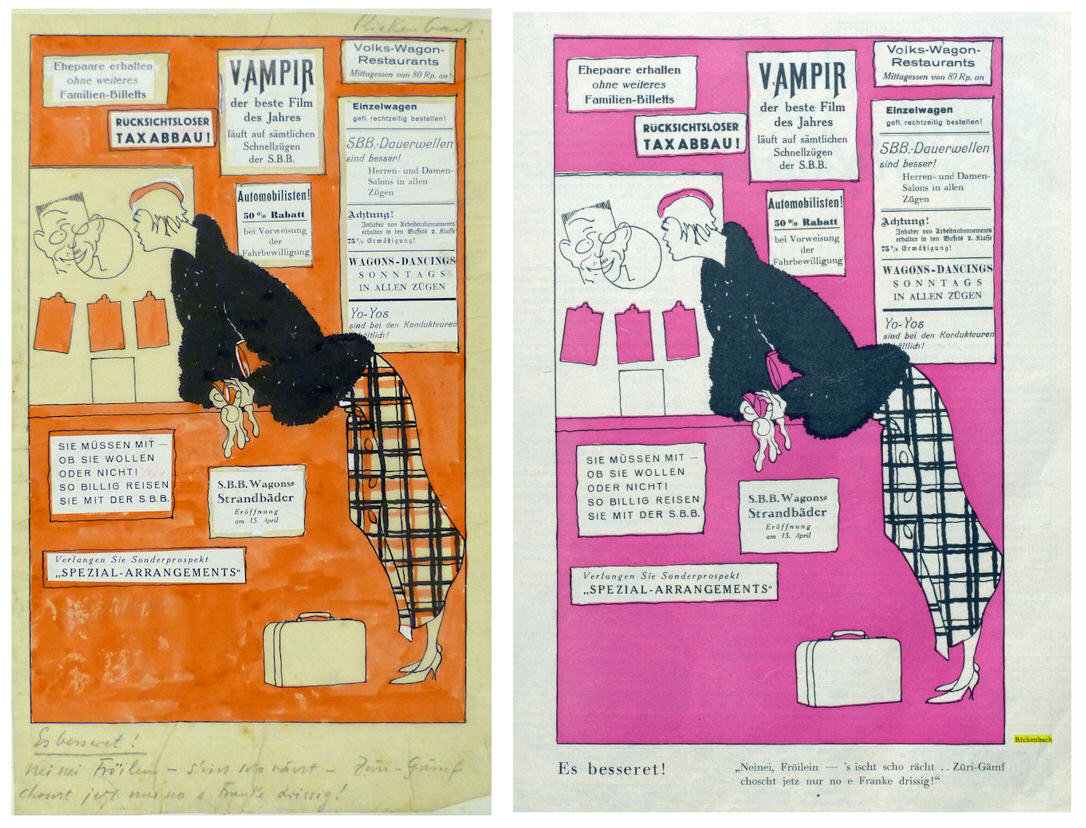 Rickenbach.
Ehepaare erhalten
ohne weiteres
Familien-Billetts
RÜCKSICHTSLOSER
TAXABBAU!
VAMPIR
der beste Film
des Jahres
läuft auf sämtlichen
Schnellzügen
der S.B.B.
Volks-Wagon-
Restaurants
Mittagessen von 80 Rp. an
Einzelwagen
gefl. rechtzeitig bestellen!
SBB.-Dauerwellen
sind besser!
Herren- und Damen-
Salons in allen
Zügen
Achtung!
Inhaber von Arbeiterabonnementen
erhalten in den Buffets 2. Klasse
75% Ermäßigung!
WAGONS-DANCINGS
SONNTAGS
IN ALLEN ZÜGEN
Yo-Yos
sind bei den Kondukteuren
hältlich!
Automobilisten!
50% Rabatt
bei Vorweisung
der
Fahrbewilligung
SIE MÜSSEN MIT —
OB SIE WOLLEN
ODER NICHT!
SO BILLIG REISEN
SIE MIT DER S.B.B.
S.B.B. Wagons-
Strandbäder
Eröffnung
am 15. April
Verlangen Sie Sonderprospekt
„SPEZIAL-ARRANGEMENTS"
Es besseret!
Nei nei Fröilein – s'ischt scho rächt – Züri-Gämf
choscht jetz nur no e Franke drissig!
Ehepaare erhalten
ohne weiteres
Familien-Billetts
RÜCKSICHTSLOSER
TAXABBAU!
VAMPIR
der beste Film
des Jahres
läuft auf sämtlichen
Schnellzügen
der S.B.B.
Volks-Wagon-
Restaurants
Mittagessen von 80 Rp. an
Einzelwagen
gefl. rechtzeitig bestellen!
SBB.-Dauerwellen
sind besser!
Herren- und Damen-
Salons in allen
Zügen
Achtung!
Inhaber von Arbeiterabonnementen
erhalten in den Buffets 2. Klasse
75% Ermäßigung!
WAGONS-DANCINGS
SONNTAGS
IN ALLEN ZÜGEN
Yo-Yos
sind bei den Kondukteuren
hältlich!
Automobilisten!
50% Rabatt
bei Vorweisung
der
Fahrbewilligung
SIE MÜSSEN MIT —
OB SIE WOLLEN
ODER NICHT!
SO BILLIG REISEN
SIE MIT DER S.B.B.
S.B.B. Wagons-
Strandbäder
Eröffnung
am 15. April
Verlangen Sie Sonderprospekt
„SPEZIAL-ARRANGEMENTS"
Rickenbach
Es besseret!
„Neinei, Fröilein — 's ischt scho rächt . . Züri-Gämf
choscht jetz nur no e Franke drissig!"